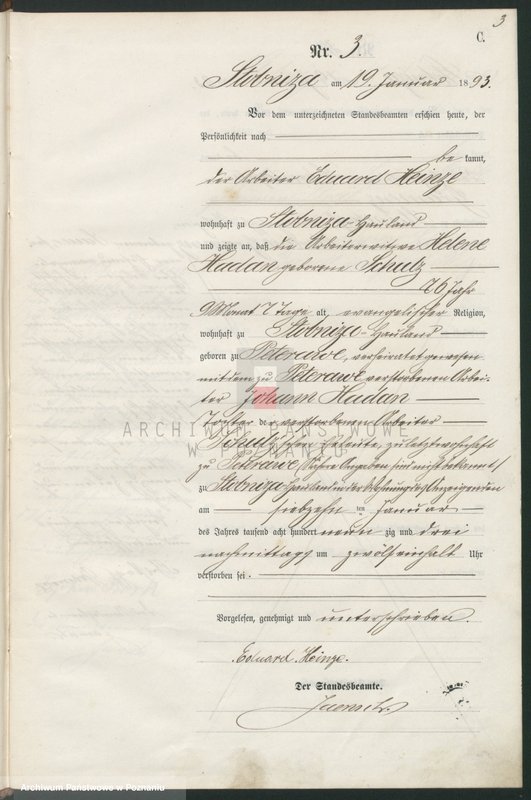 3
C.
Nr. 3.
Stobniza am 19. Januar 1893.
Vor dem unterzeichneten Standesbeamten erschien heute, der
Persönlichkeit nach
be kannt,
der Arbeiter Eduard Heinze
wohnhaft zu Stobniza-Hauland
und zeigte an, daß die Arbeiterwitwe Helene
Hadan geborene Schulz
76 Jahr
9 Monat 7 Tage alt, evangelischer Religion,
wohnhaft zu Stobniza-Hauland
geboren zu Peterawe, verheiratet gewesen
mit dem zu Peterawe verstorbenen Arbei-
ter Johann Hadan
Tochter der verstorbenen Arbeiter
ARCHIWUM PAŃSTWOWE
W POZNANIU
Schulz'schen Eheleute, zuletzt wohnhaft
zu Peterawe (Nähere Angaben sind nicht bekannt)
zu Stobniza-Hauland in der Wohnung des Anzeigenden
am siebzehnten Januar
des Jahres tausend acht hundert neunzig und drei
nachmittags um zwölf einhalb Uhr
verstorben sei.
Vorgelesen, genehmigt und unterschrieben.
Eduard Heinze.
Der Standesbeamte.
Jaensch.
Archiwum Państwowe w Poznaniu